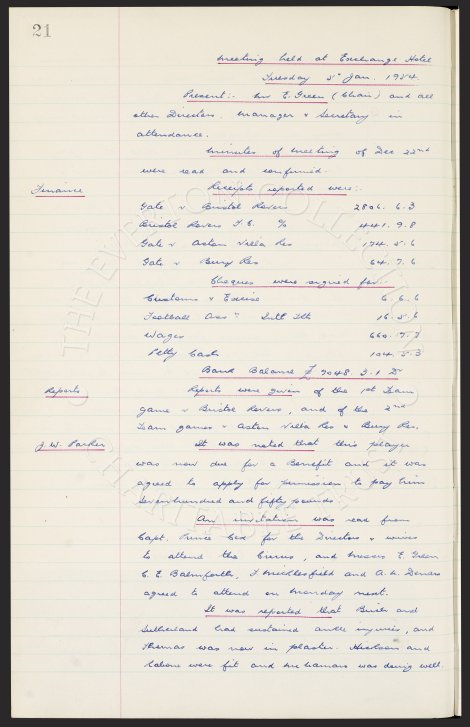 21
Meeting held at Exchange Hotel
Tuesday 5th Jan. 1954
Present:- Mr E. Green (Chair) and all
other Directors. Manager & Secretary in
attendance.
Minutes of Meeting of Dec 22nd
were read and confirmed.
Finance
Receipts reported were:-
Gate v Bristol Rovers 2806. 6. 3
Bristol Rovers F.C. % 441. 9. 8
Gate v Aston Villa Res 174. 5. 6
Gate v Bury Res 64. 7. 6
Cheques were signed for:-
Customs & Excise 6. 6. 6
Football Assn 16. 5. 6
Wages 660. 17. 3
Petty Cash 104. 5. 3
Bank Balance £ 9048. 3. 1 Dr
Reports
Reports were given of the 1st Team
game v Bristol Rovers, and of the 2nd
Team games v Aston Villa Res & Bury Res.
J.W. Parker
It was noted that this player
was now due for a Benefit and it was
agreed to apply for permission to pay him
Sevenhundred and fifty pounds
An invitation was read from
Capt. Prince Cox for the Directors & wives
to attend the Circus, and Messrs E. Green
C.E. Balmforth, F. Micklesfield and A.L. Denaro
agreed to attend on Monday next.
It was reported that Buckle and
Sutherland had sustained ankle injuries, and
Thomas was now in plaster. Hickson and
Labone were fit and McNamara was doing well.
THE EVERTON COLLECTION
CHARITABLE TRUST